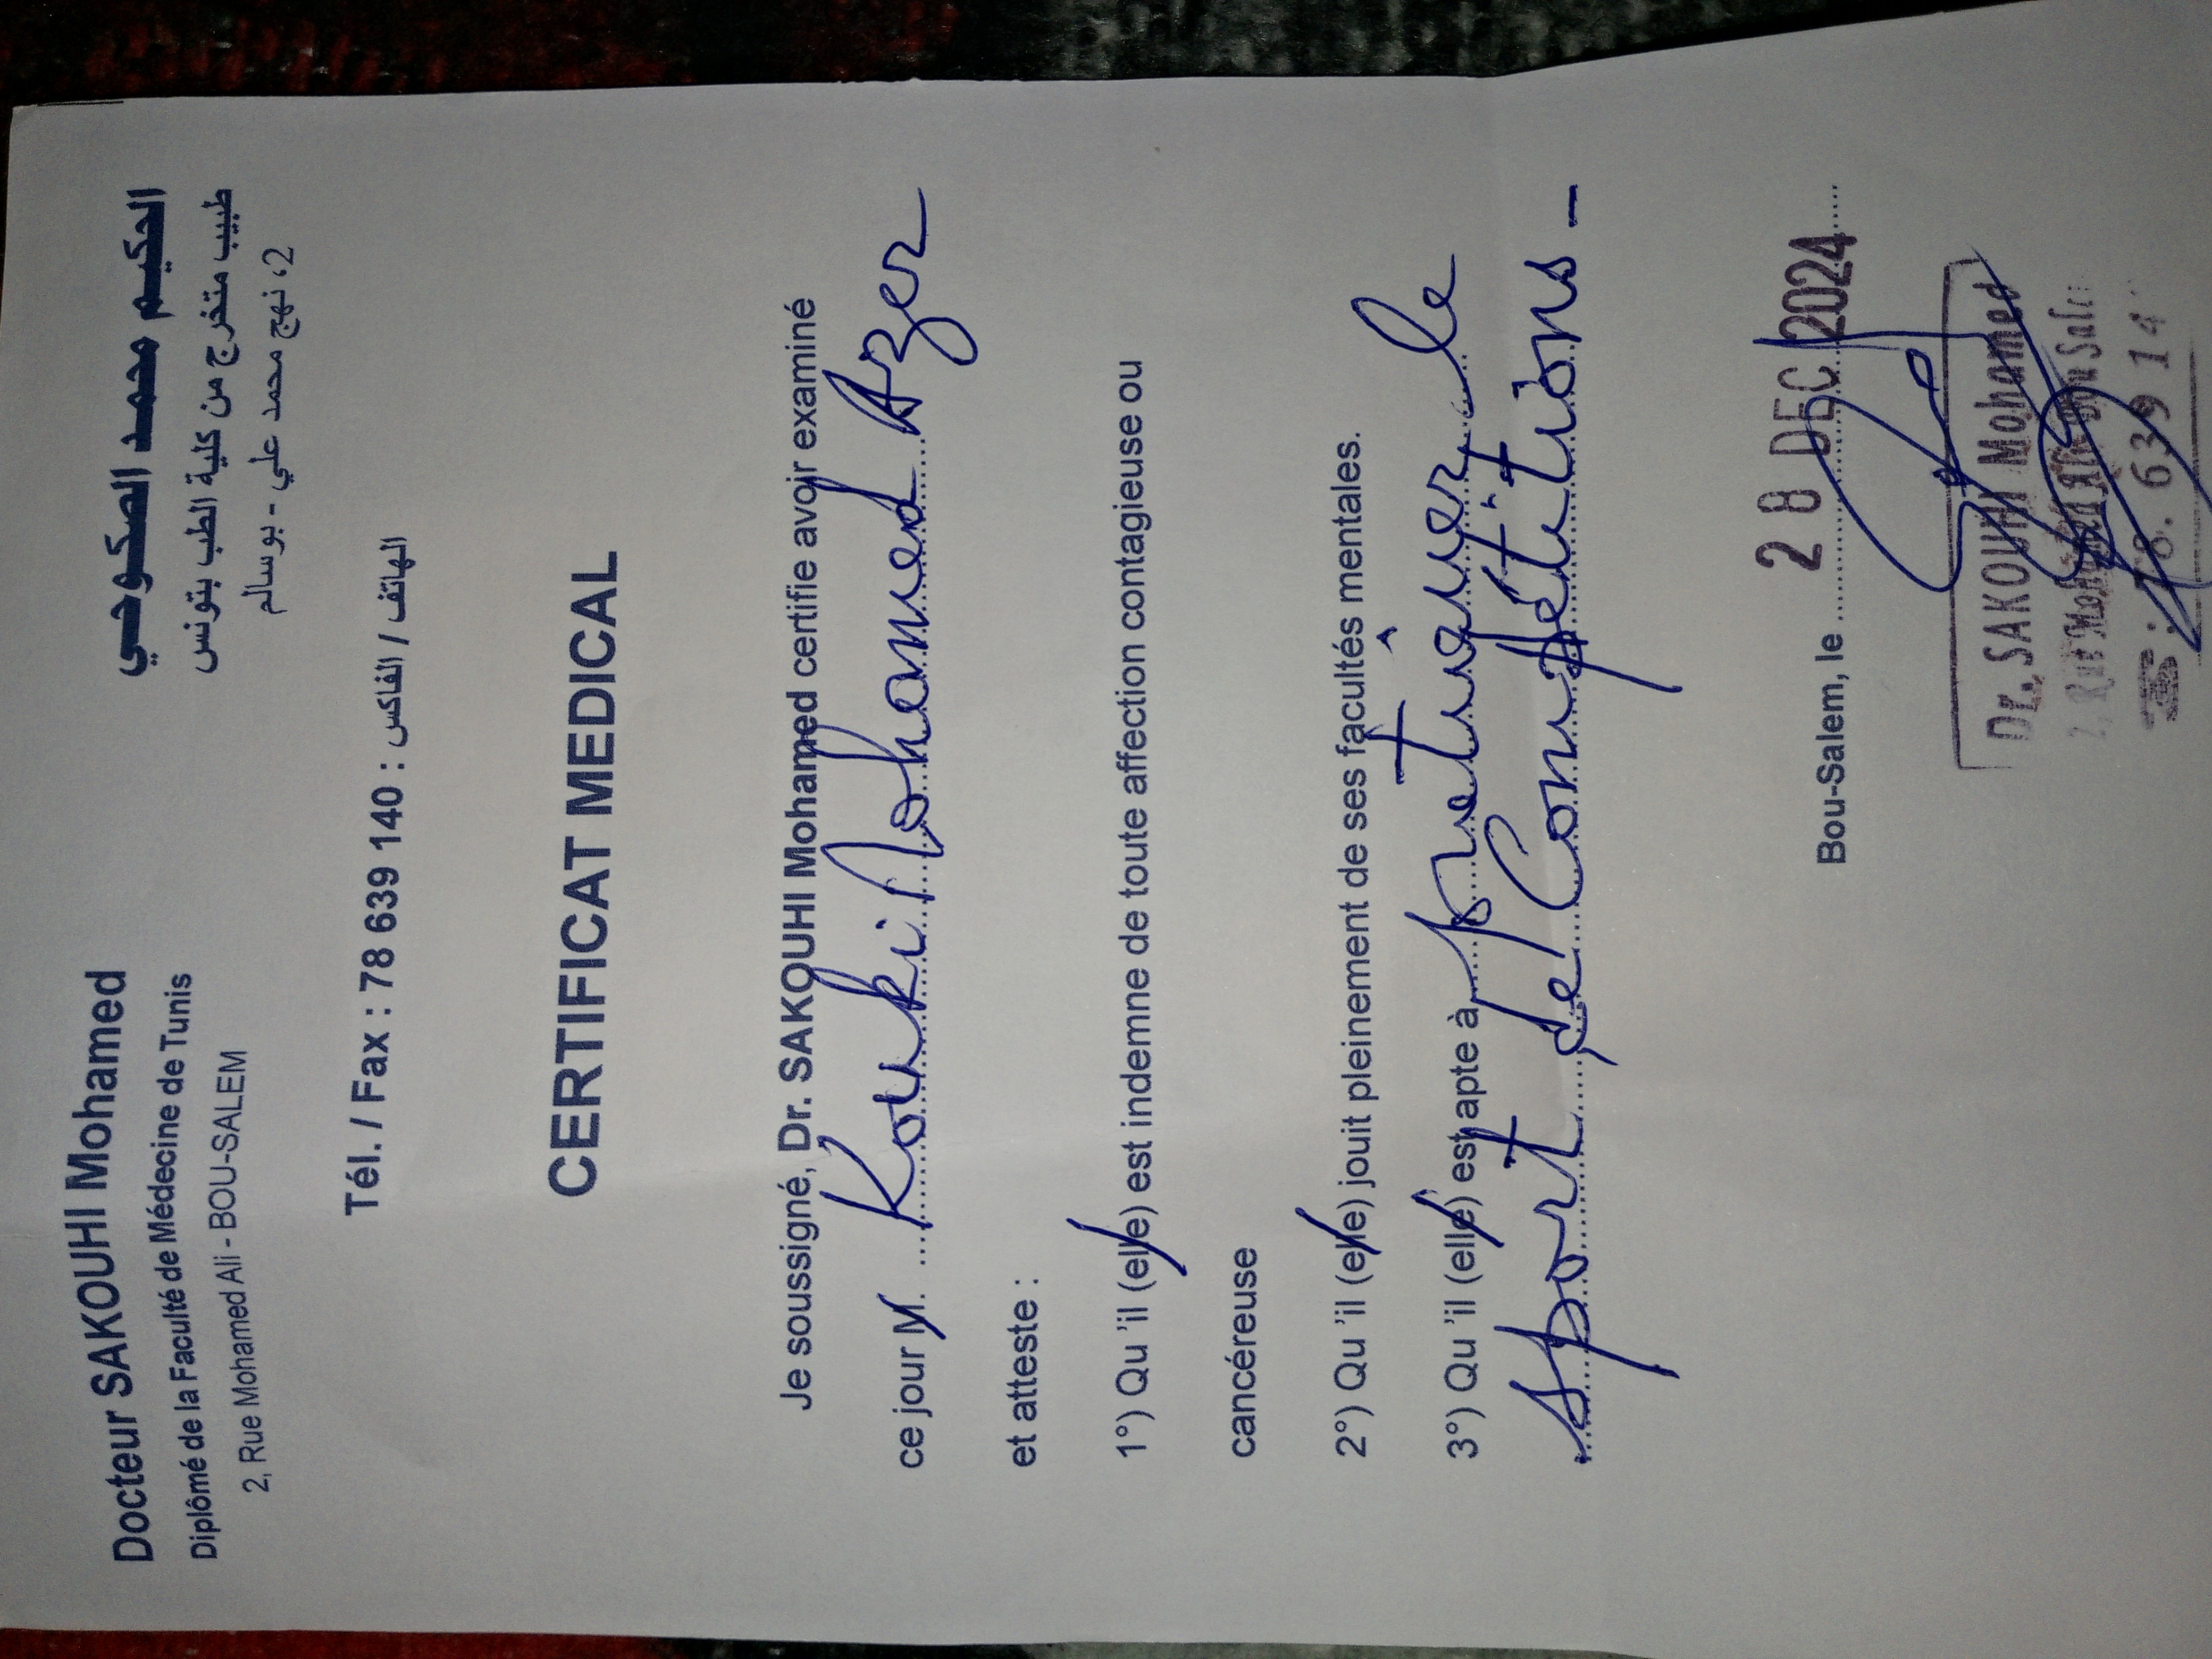 Docteur SAKOUHI Mohamed
Diplômé de la Faculté de Médecine de Tunis
2, Rue Mohamed Ali - BOU-SALEM
الحكيم محمد الصكوحي
طبيب متخرج من كلية الطب بتونس
2، نهج محمد علي - بوسالم
Tél. / Fax : 78 639 140 : الهاتف / الفاكس
CERTIFICAT MEDICAL
Je soussigné, Dr. SAKOUHI Mohamed certifie avoir examiné
ce jour M. Kouki Mohamed Azer
et atteste :
1°) Qu 'il (elle) est indemne de toute affection contagieuse ou
cancéreuse
2°) Qu 'il (elle) jouit pleinement de ses facultés mentales.
3°) Qu 'il (elle) est apte à pratiquer le
sport de Compétitions -
Bou-Salem, le 28 DEC 2024
Dr. SAKOUHI Mohamed
2, Rue Mohamed Ali Bou Sale
78. 639 14